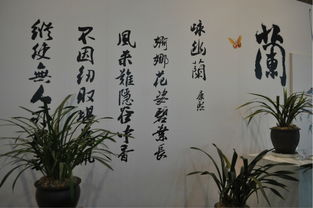 蘭
咏幽蘭 康熙
婀娜花姿碧葉長
風来難隐谷中香
不因紉取堪
縱使無人